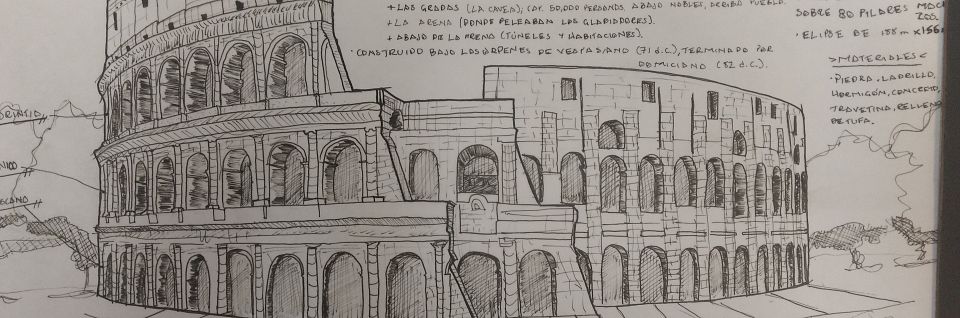 + LAS GRADAS (LA CAVEA), CAP. 50,000 PERSONAS, ABAJO NOBLES, ARRIBA PUEBLO.
+ LA ARENA (DONDE PELEABAN LOS GLADIADORES).
+ ABAJO DE LA ARENA (TÚNELES Y HABITACIONES).
· CONSTRUIDO BAJO LAS ÓRDENES DE VESPASIANO (71 d.C.), TERMINADO POR
DOMICIANO (82 d.C.).
SOBRE 80 PILARES
ZOS.
· ELIPSE DE 188 m x 156
>MATERIALES<
· PIEDRA, LADRILLO,
HORMIGÓN, CONCRETO,
TRAVETINA, RELLENO
DE TUFA.
ORINTIO
NICO
SCANO